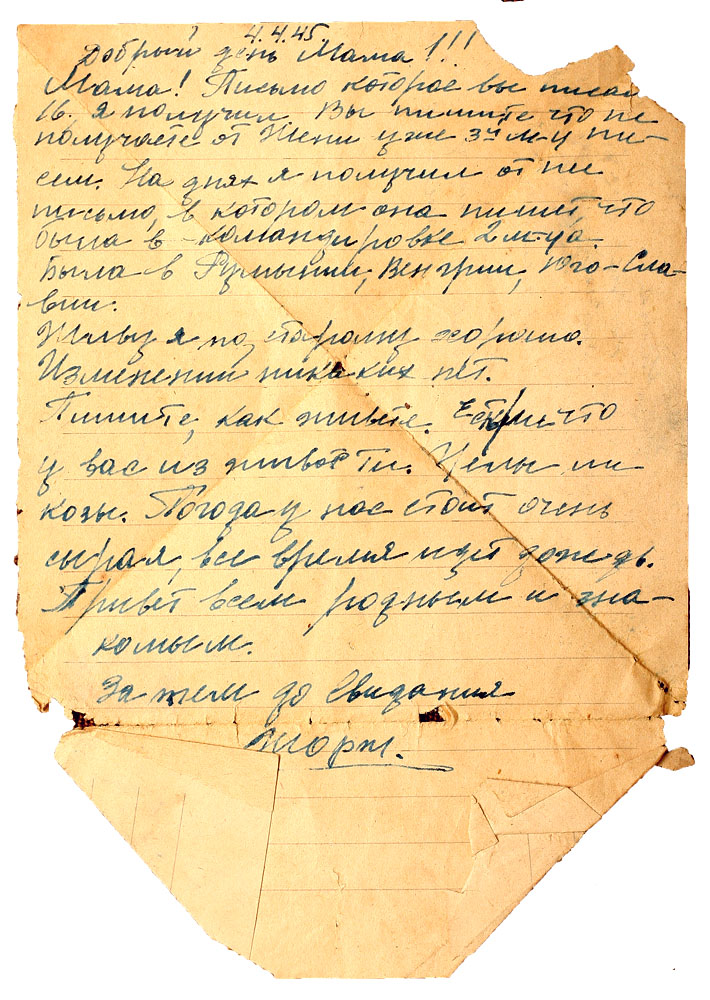 4.4.45.
Добрый день Мама!!!
Мама! Письмо которое вы писали
16. я получил. Вы пишите что не
получаете от Жени уже 3й м-ц пи-
сем. На днях я получил от ни
письмо, в котором она пишет, что
была в командировке 2 м-ца.
Была в Румынии, Венгрии, Юго-Сла-
вии.
Живу я по старому хорошо.
Изменений никаких нет.
Пишите, как живете. Есть ли что
у вас из живости. Целы ли
козы. Погода у нас стоит очень
сырая, все время идет дождь.
Привет всем родным и зна-
комым.
За тем до Свидания
Жорж.